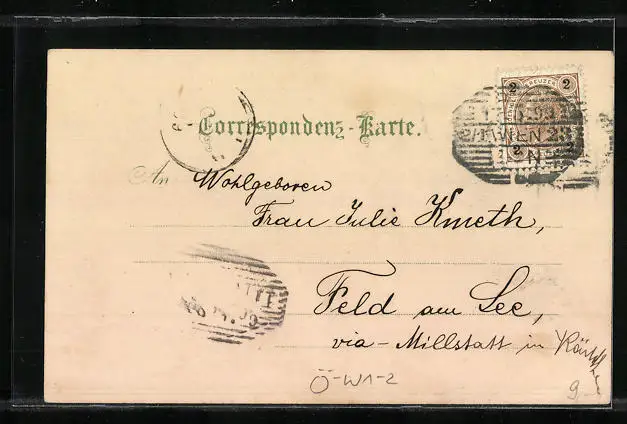 Correspondenz-Karte.
2 KREUZER 2
2/1 WIEN 2
2 2
An Wohlgeboren
Frau Julie Kmeth,
Feld am See,
via - Millstatt in
Ö-W1-2
9.-